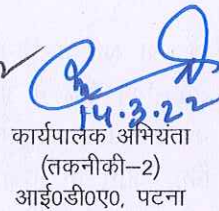 14.3.22
कार्यपालक अभियंता
(तकनीकी–2)
आई0डी0ए0, पटना